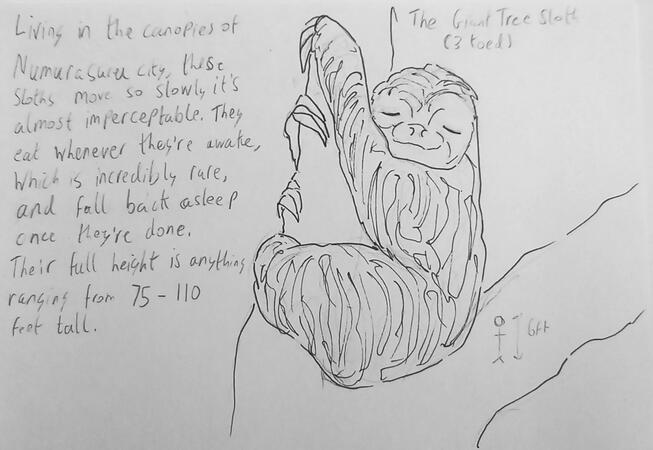 Living in the canopies of
Numurasuru city, these
sloths move so slowly it's
almost imperceptable. They
eat whenever they're awake,
which is incredibly rare,
and fall back asleep
once they're done.
Their full height is anything
ranging from 75 - 110
feet tall.
The Giant Tree Sloth
(3 toed)
6ft